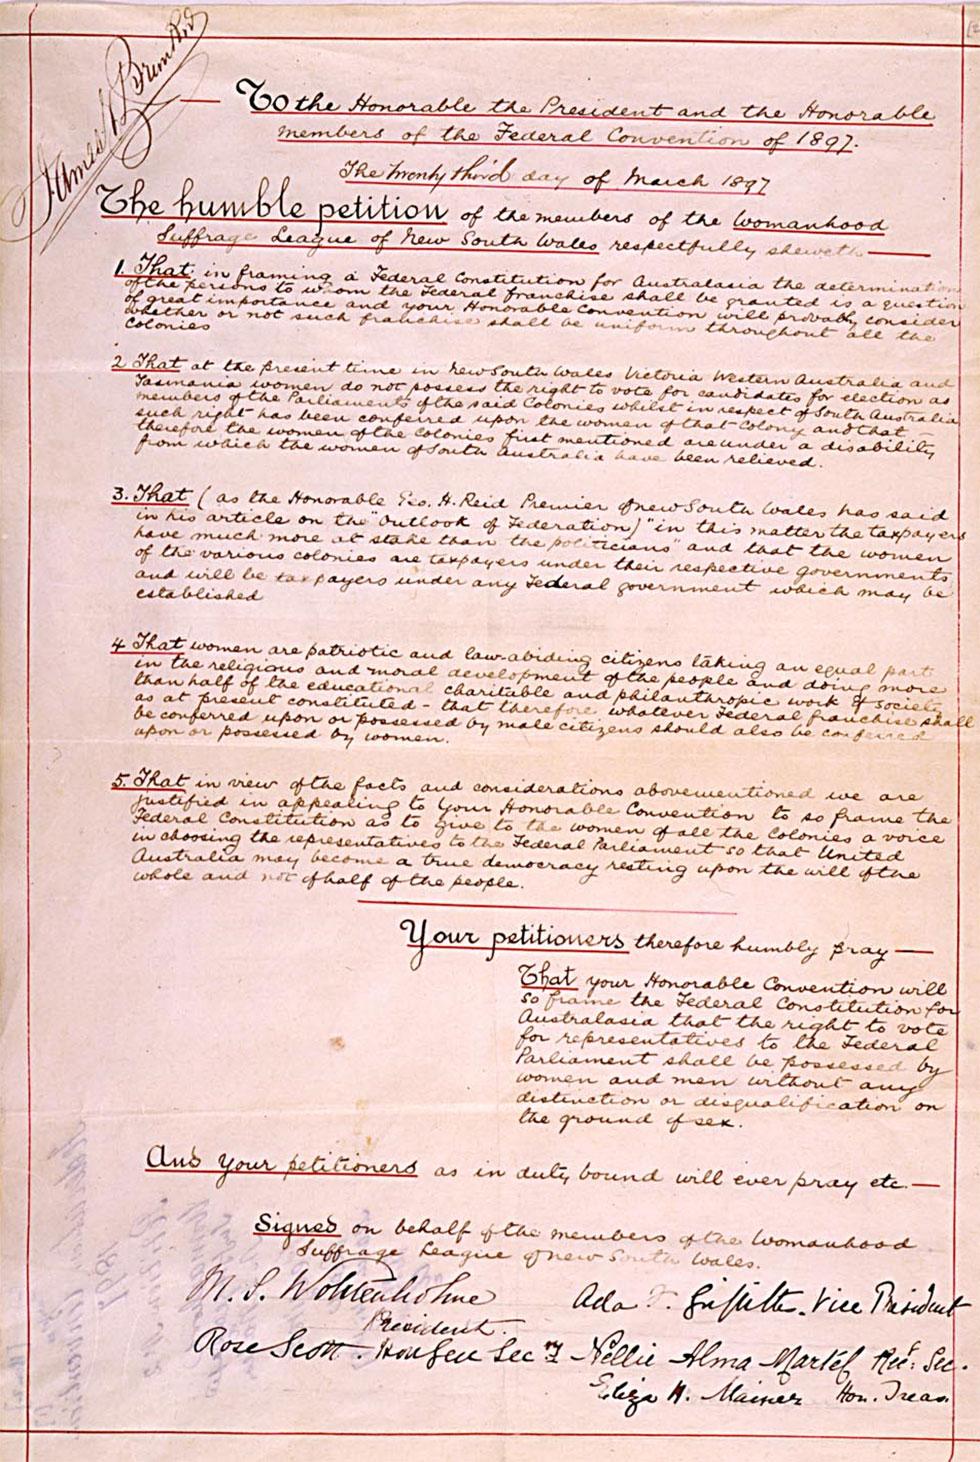 James N Brunker
To the Honorable the President and the Honorable
members of the Federal Convention of 1897.
The twenty third day of March 1897
The humble petition of the members of the Womanhood
Suffrage League of New South Wales respectfully sheweth
1. That in framing a Federal Constitution for Australasia the determination
of the persons to whom the Federal franchise shall be granted is a question
of great importance and your Honorable Convention will probably consider
whether or not such franchise shall be uniform throughout all the
Colonies
2 That at the present time in New South Wales Victoria Western Australia and
Tasmania women do not possess the right to vote for candidates for election as
members of the Parliaments of the said Colonies whilst in respect of South Australia
such right has been conferred upon the women of that Colony and that
therefore the women of the Colonies first mentioned are under a disability
from which the women of South Australia have been relieved.
3. That (as the Honorable Geo. H. Reid Premier of New South Wales has said
in his article on the "Outlook of Federation) "in this matter the taxpayers
have much more at stake than the politicians" and that the women
of the various colonies are taxpayers under their respective governments
and will be taxpayers under any Federal government which may be
established
4 That women are patriotic and law-abiding citizens taking an equal part
in the religious and moral development of the people and doing more
than half of the educational charitable and philanthropic work of society
as at present constituted - that therefore whatever Federal franchise shall
be conferred upon or possessed by male citizens should also be conferred
upon or possessed by women.
5. That in view of the facts and considerations abovementioned we are
justified in appealing to Your Honorable Convention to so frame the
Federal Constitution as to give to the women of all the Colonies a voice
in choosing the representatives to the Federal Parliament so that United
Australia may become a true democracy resting upon the will of the
whole and not of half of the people.
Your petitioners therefore humbly pray
That your Honorable Convention will
so frame the Federal Constitution for
Australasia that the right to vote
for representatives to the Federal
Parliament shall be possessed by
women and men without any
distinction or disqualification on
the ground of sex.
And your petitioners as in duty bound will ever pray etc.
Signed on behalf of the members of the Womanhood
Suffrage League of New South Wales.
M. S. Wolstenholme
President.
Ada Griffiths. Vice President
Rose Scott. Hon Gen Sec
Nellie Alma Martel Rec. Sec.
Eliza H. Hon. Treas.